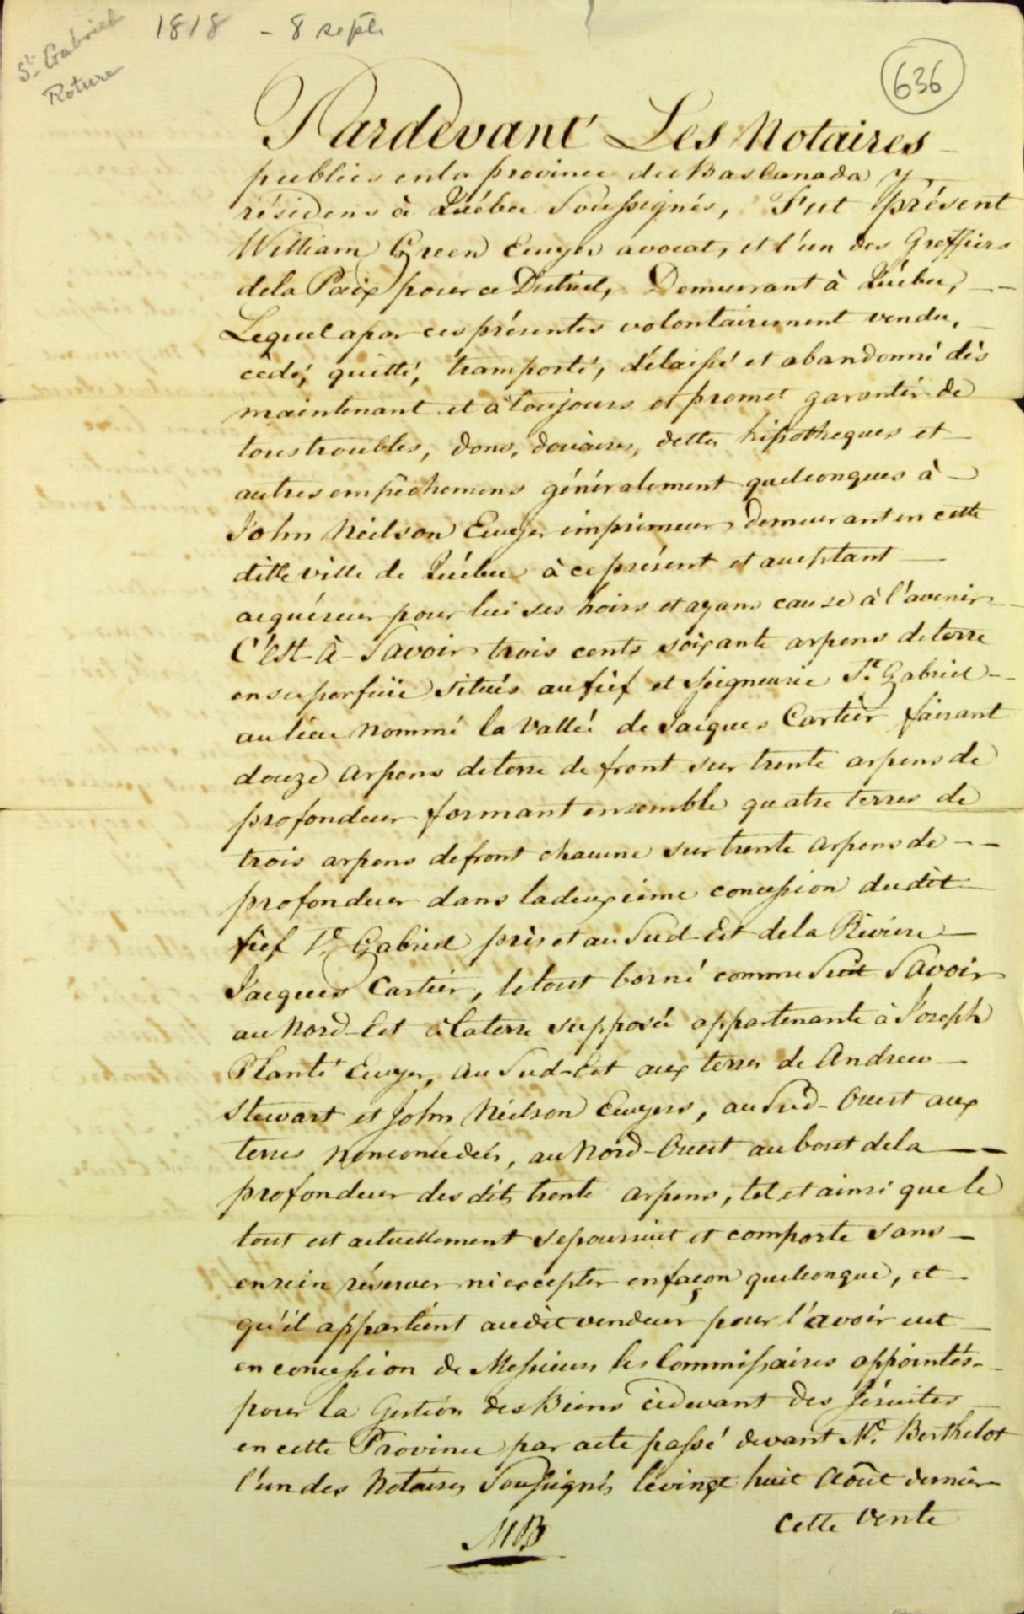 St Gabriel
Roture
1818 - 8 septr
636
Pardevant Les Notaires
publics en la province du Bas Canada y
résidens à Québec Soussignés, Fut présent
William Green Ecuyer avocat, et l'un des Greffiers
de la Paix pour ce District, Demeurant à Québec,
Lequel a par ces présentes volontairement vendu,
cédé, quitté, transporté, délaissé et abandonné dès
maintenant et à toujours et promet garantir de
tous troubles, dons, douaires, dettes hipotheques et
autres empêchemens généralement quelconques à
John Neilson Ecuyer imprimeur, demeurant en cette
ditte ville de Québec à ce présent et acceptant
acquéreur pour lui ses hoirs et ayans cause à l'avenir
C'Est-à-Savoir trois cents soixante arpens de terre
en superficie situés au fief et seigneurie St. Gabriel
au lieu nommé la Vallé de Jacques Cartier, faisant
douze arpens de terre de front sur trente arpens de
profondeur formant ensemble quatre terres de
trois arpens de front chacune sur trente arpens de
profondeur dans la deuxieme concession dudit
fief St. Gabriel pris et au Sud-Est de la Riviere
Jacques Cartier, le tout borné comme Suit Savoir
au Nord-Est à la terre supposée appartenante à Joseph
Planté Ecuyer, au Sud-Est aux terres de Andrew
Stewart et John Neilson Ecuyers, au Sud-Ouest aux
terres nonconcédées, au Nord-Ouest au bout de la
profondeur des dits trente arpens, tel et ainsi que le
tout est actuellement se poursuit et comporte sans
en rien réserver ni excepter en façon quelconque, et
qu'il appartient audit vendeur pour l'avoir eut
en concession de Messieurs les Commissaires appointés
pour la Gestion des Biens cidevant des Jésuites
en cette Province par acte passé devant Me. Berthelot
l'un des Notaires Soussignés le vingt huit Août dernier
Cette Vente
MB